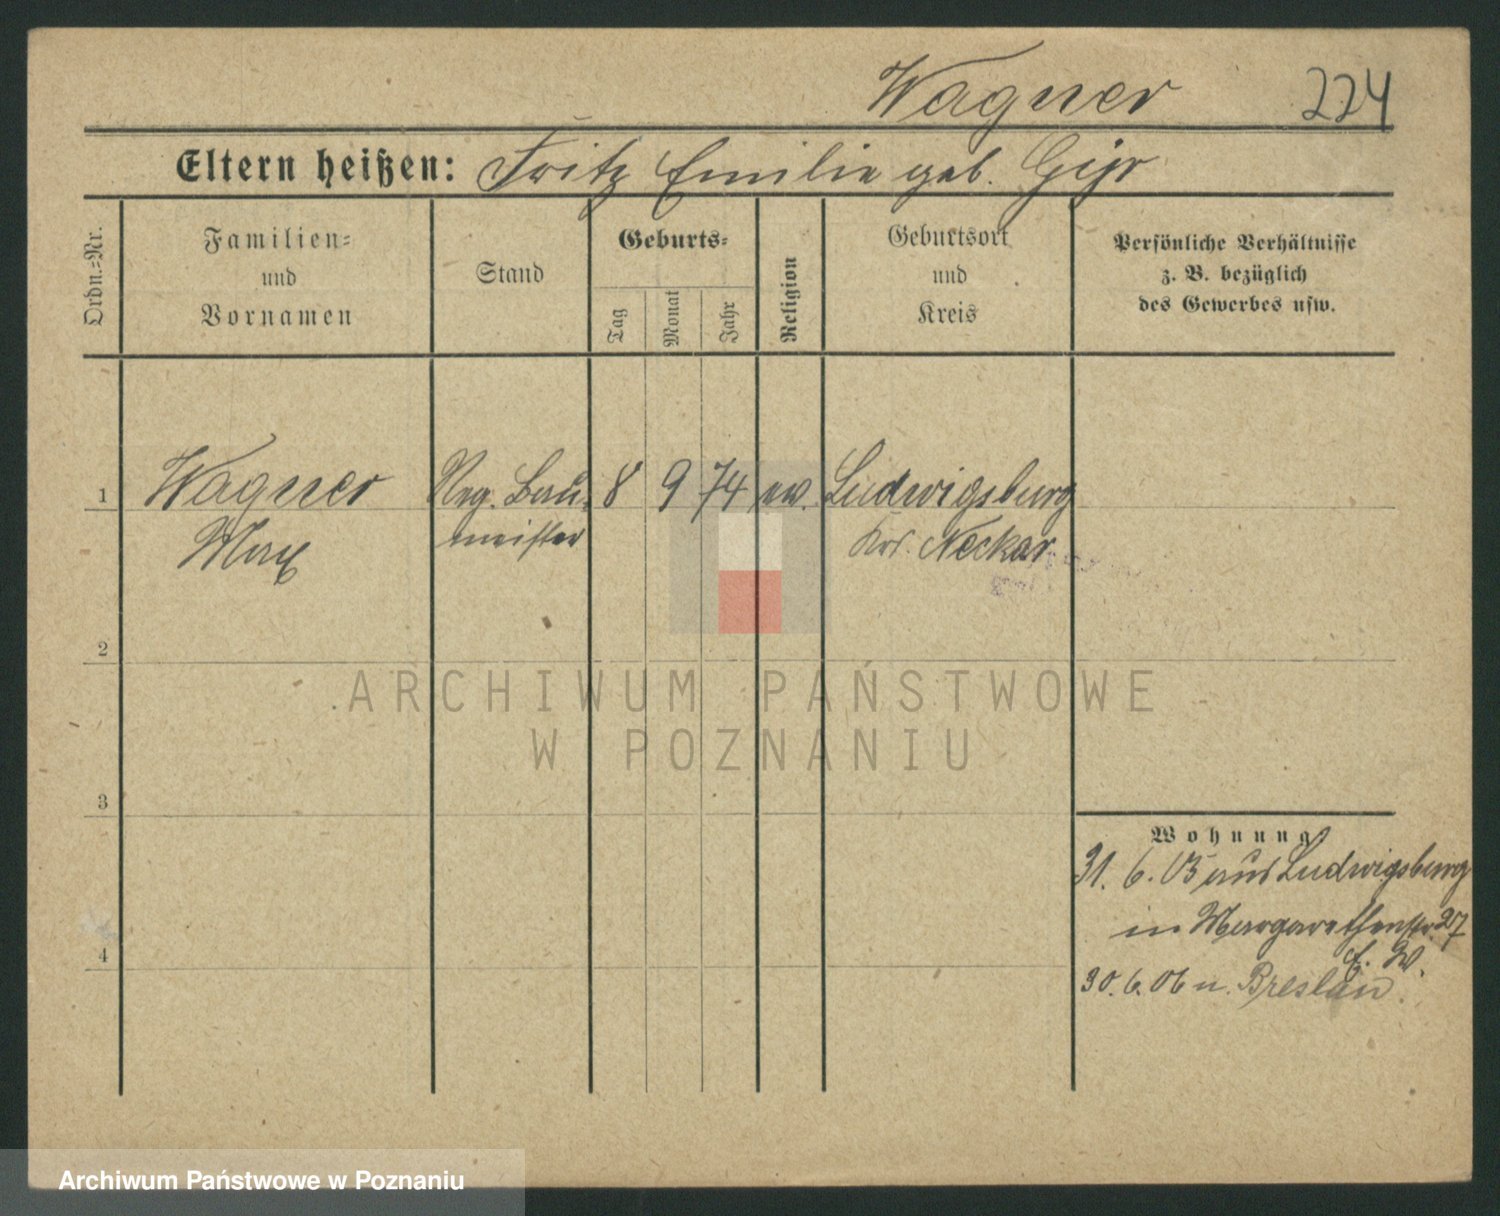 Wagner 224
Eltern heißen: Fritz Emilie geb.
Ordn.-Nr.
Familien-
und
Vornamen
Stand
Geburts-
Tag
Monat
Jahr
Religion
Geburtsort
und
Kreis
Persönliche Verhältnisse
z. B. bezüglich
des Gewerbes usw.
1 Wagner Reg. Bau- 8 9 74 ev. Ludwigsburg
Max meister Krs. Neckar
2
3
4
Wohnung
31. 6. 05 aus Ludwigsburg
in Margarethenstr. 27
b. W.
30. 6. 06 n. Breslau.
ARCHIWUM PAŃSTWOWE
W POZNANIU
Archiwum Państwowe w Poznaniu